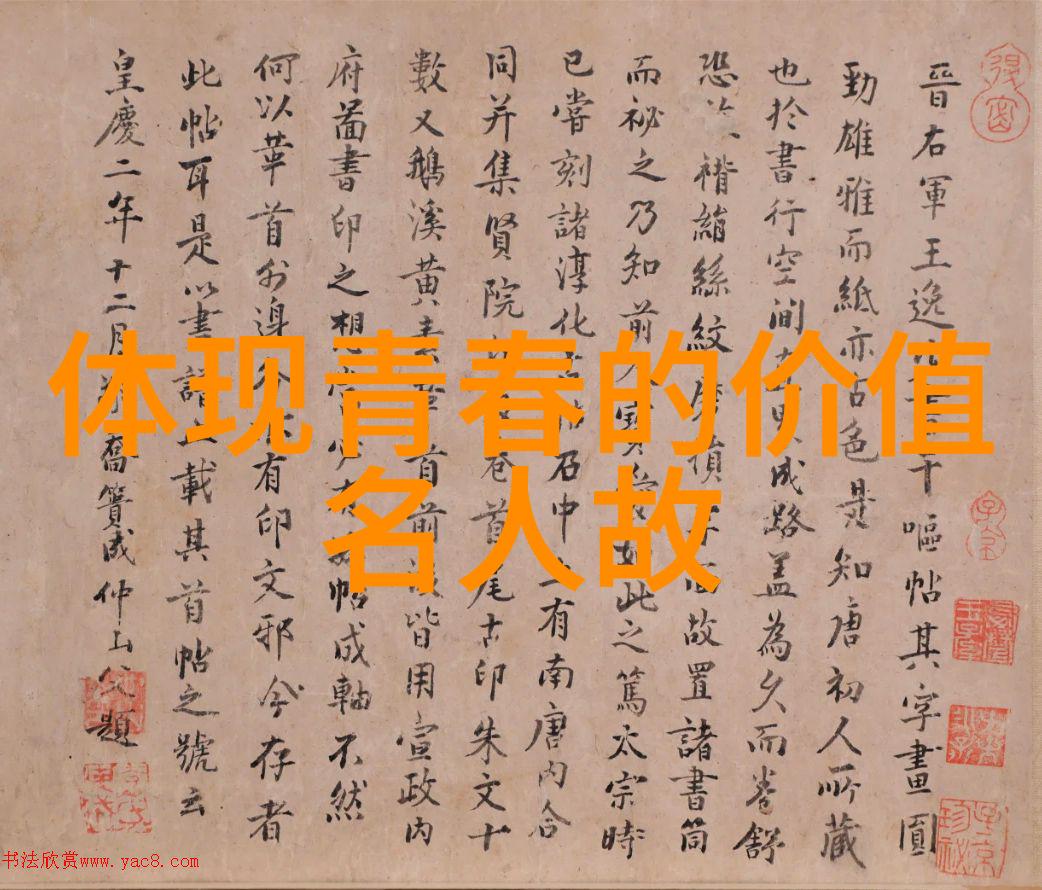 晉右軍王逸
干嘔帖其字畫圓
勁雄雅而紙亦古色是知唐初人所藏
也於書行空間
成路蓋為久而卷舒
恐
褙縮絲紋
故置諸書筒
而祕之乃知前人
此之篤太宗時
已嘗刻諸淳化
石中
有南唐內合
同并集賢院
首尾古印朱文十
數又鵝溪黃
首前
皆用宣政內
府圖書印之相
帖成軸不然
何以華首外邊
有印文邪今存者
此帖耳是以畫譜
載其首帖之號云
皇慶二年十二月
喬簣成仲山父題
体现青春的价值
名人故
书法欣赏www.yac8.com